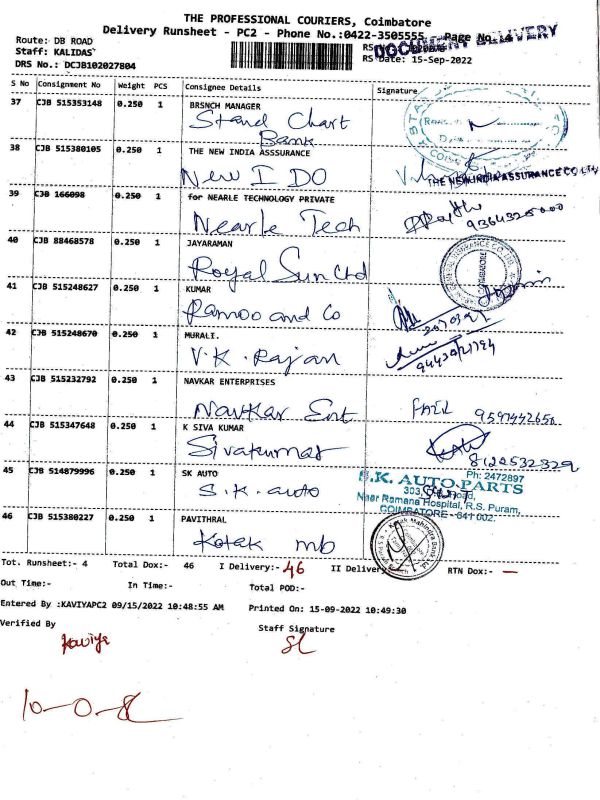 THE PROFESSIONAL COURIERS, Coimbatore
Delivery Runsheet - PC2 - Phone No.:0422-3505555 Page No.:4
DOCUMENT DELIVERY
Route: DB ROAD
Staff: KALIDAS
RS Date: 15-Sep-2022
DRS No.: DCJB102027804
S No Consignment No Weight PCS Consignee Details Signature
37 CJB 515353148 0.250 1 BRSNCH MANAGER
Stand Chart
Bank
38 CJB 515380105 0.250 1 THE NEW INDIA ASSSURANCE
New I DO
THE NEW INDIA ASSURANCE CO LTD
39 CJB 166098 0.250 1 for NEARLE TECHNOLOGY PRIVATE
Nearle Tech
40 CJB 88468578 0.250 1 JAYARAMAN
Royal Sun Ltd
41 CJB 515248627 0.250 1 KUMAR
Ramoo and Co
42 CJB 515248670 0.250 1 MURALI.
V.K. Rajan
43 CJB 515232792 0.250 1 NAVKAR ENTERPRISES
Navkar Ent
44 CJB 515347648 0.250 1 K SIVA KUMAR
Sivakumar
8122532329
45 CJB 514879996 0.250 1 SK AUTO
S.K. auto
Ph: 2472897
S.K. AUTO PARTS
Near Ramana Hospital, R.S. Puram,
COIMBATORE - 641 002.
46 CJB 515380227 0.250 1 PAVITHRAL
Kotak mb
Tot. Runsheet:- 4 Total Dox:- 46 I Delivery:- 46 II Delivery RTN Dox:- —
Out Time:- In Time:- Total POD:-
Entered By :KAVIYAPC2 09/15/2022 10:48:55 AM Printed On: 15-09-2022 10:49:30
Verified By Staff Signature
Kaviya